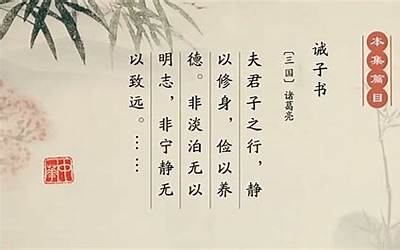 本集篇目
诫子书
〔三国〕诸葛亮
夫君子之行，静
以修身，俭以养
德。非淡泊无以
明志，非宁静无
以致远。……